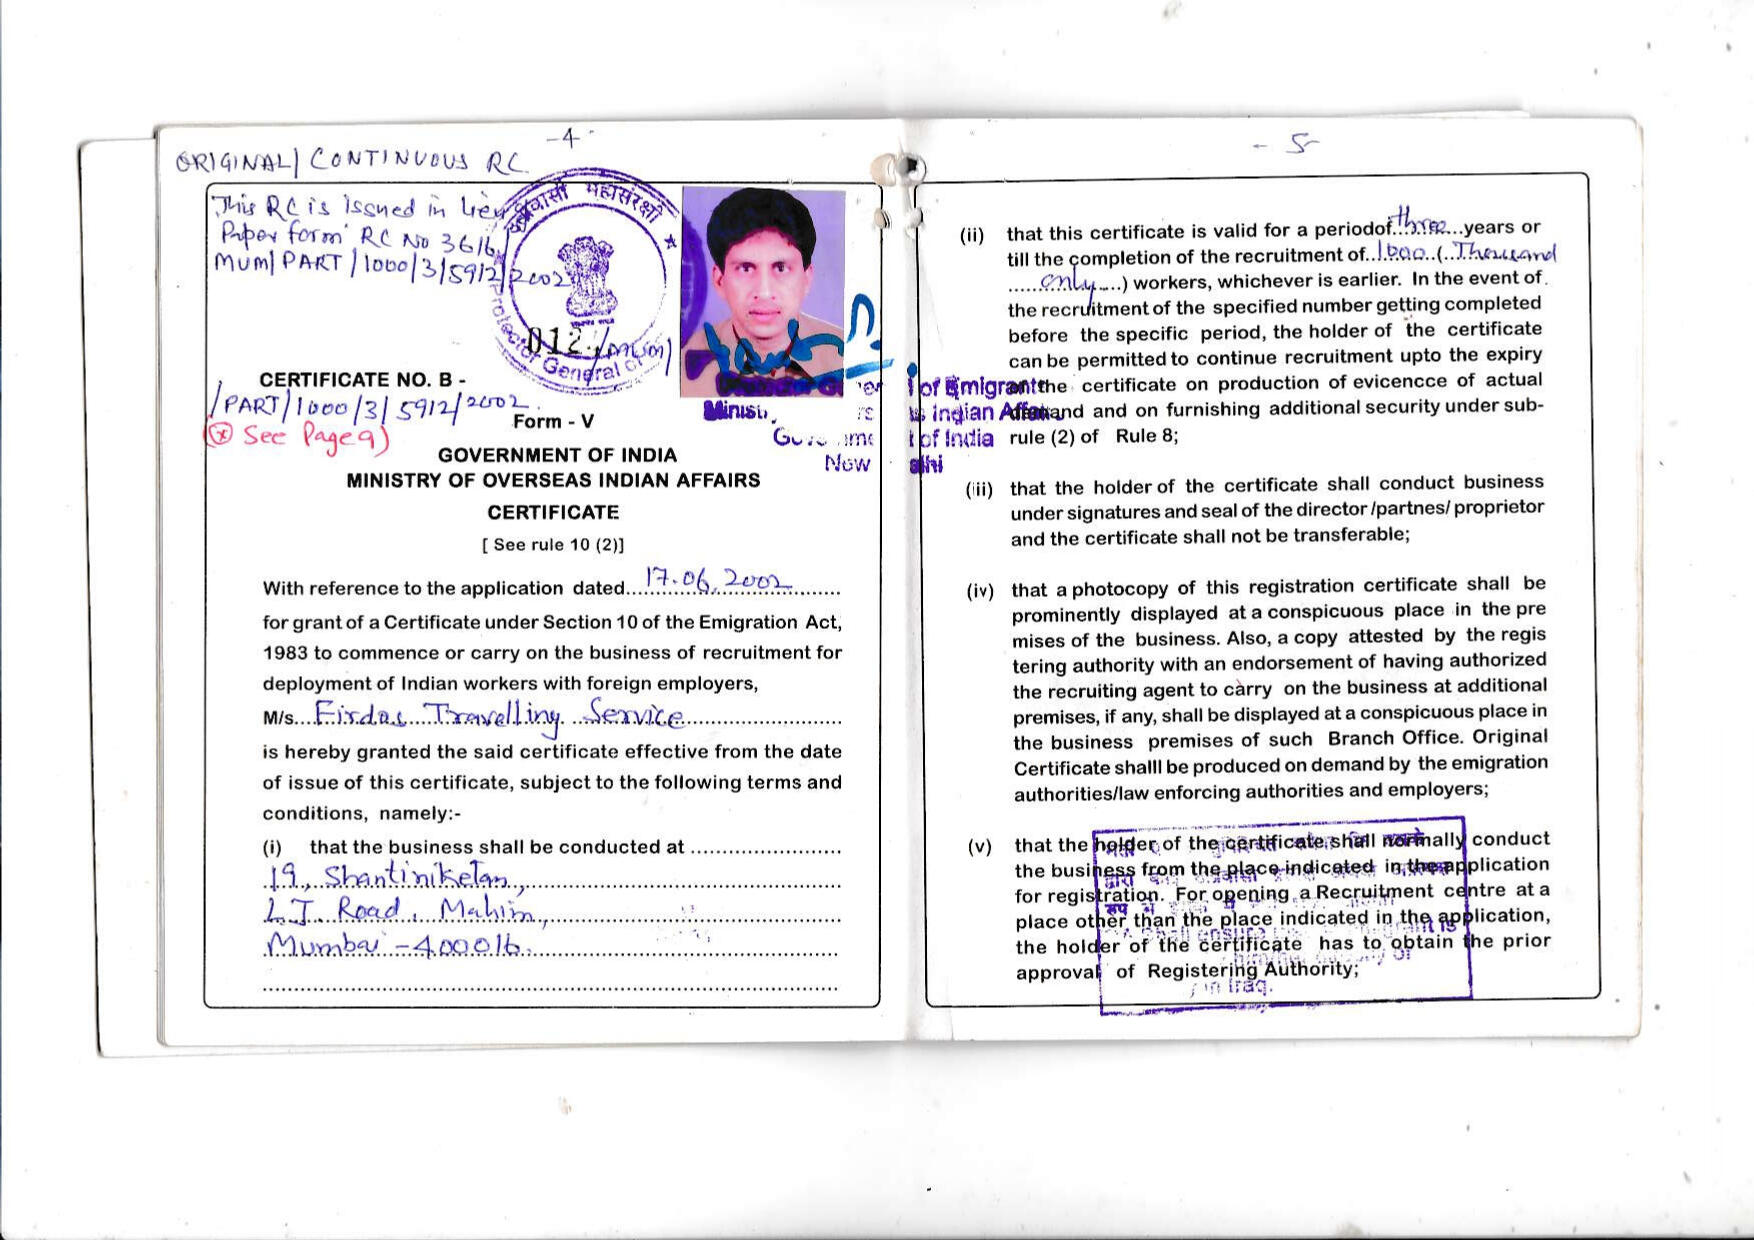 -4-
ORIGINAL/ CONTINUOUS RC
This RC is issued in lieu
Paper form RC No 3616/
MUM/PART/1000/3/5912/2002
प्रवासी महासंरक्षी
Protector General of
012/MUM/
CERTIFICATE NO. B -
/PART/1000/3/5912/2002
(* See Page 9)
Form - V
GOVERNMENT OF INDIA
MINISTRY OF OVERSEAS INDIAN AFFAIRS
CERTIFICATE
[ See rule 10 (2)]
With reference to the application dated....17.06.2002..........
for grant of a Certificate under Section 10 of the Emigration Act,
1983 to commence or carry on the business of recruitment for
deployment of Indian workers with foreign employers,
M/s...Firdas Travelling Service..........
is hereby granted the said certificate effective from the date
of issue of this certificate, subject to the following terms and
conditions, namely:-
(i) that the business shall be conducted at ..........................
19, Shantiniketan,
L.J. Road, Mahim,
Mumbai - 400016.
- 5-
(ii) that this certificate is valid for a periodof..three...years or
till the completion of the recruitment of..1000..(..Thousand
.....only....) workers, whichever is earlier. In the event of
the recruitment of the specified number getting completed
before the specific period, the holder of the certificate
can be permitted to continue recruitment upto the expiry
of Emigrants
the certificate on production of evicencce of actual
Indian Affairs
demand and on furnishing additional security under sub-
of India
rule (2) of Rule 8;
New Delhi
(iii) that the holder of the certificate shall conduct business
under signatures and seal of the director /partnes/ proprietor
and the certificate shall not be transferable;
(iv) that a photocopy of this registration certificate shall be
prominently displayed at a conspicuous place in the pre
mises of the business. Also, a copy attested by the regis
tering authority with an endorsement of having authorized
the recruiting agent to carry on the business at additional
premises, if any, shall be displayed at a conspicuous place in
the business premises of such Branch Office. Original
Certificate shalll be produced on demand by the emigration
authorities/law enforcing authorities and employers;
(v) that the holder of the certificate shall normally conduct
the business from the place indicated in the application
for registration. For opening a Recruitment centre at a
place other than the place indicated in the application,
the holder of the certificate has to obtain the prior
approval of Registering Authority;
in Iraq.